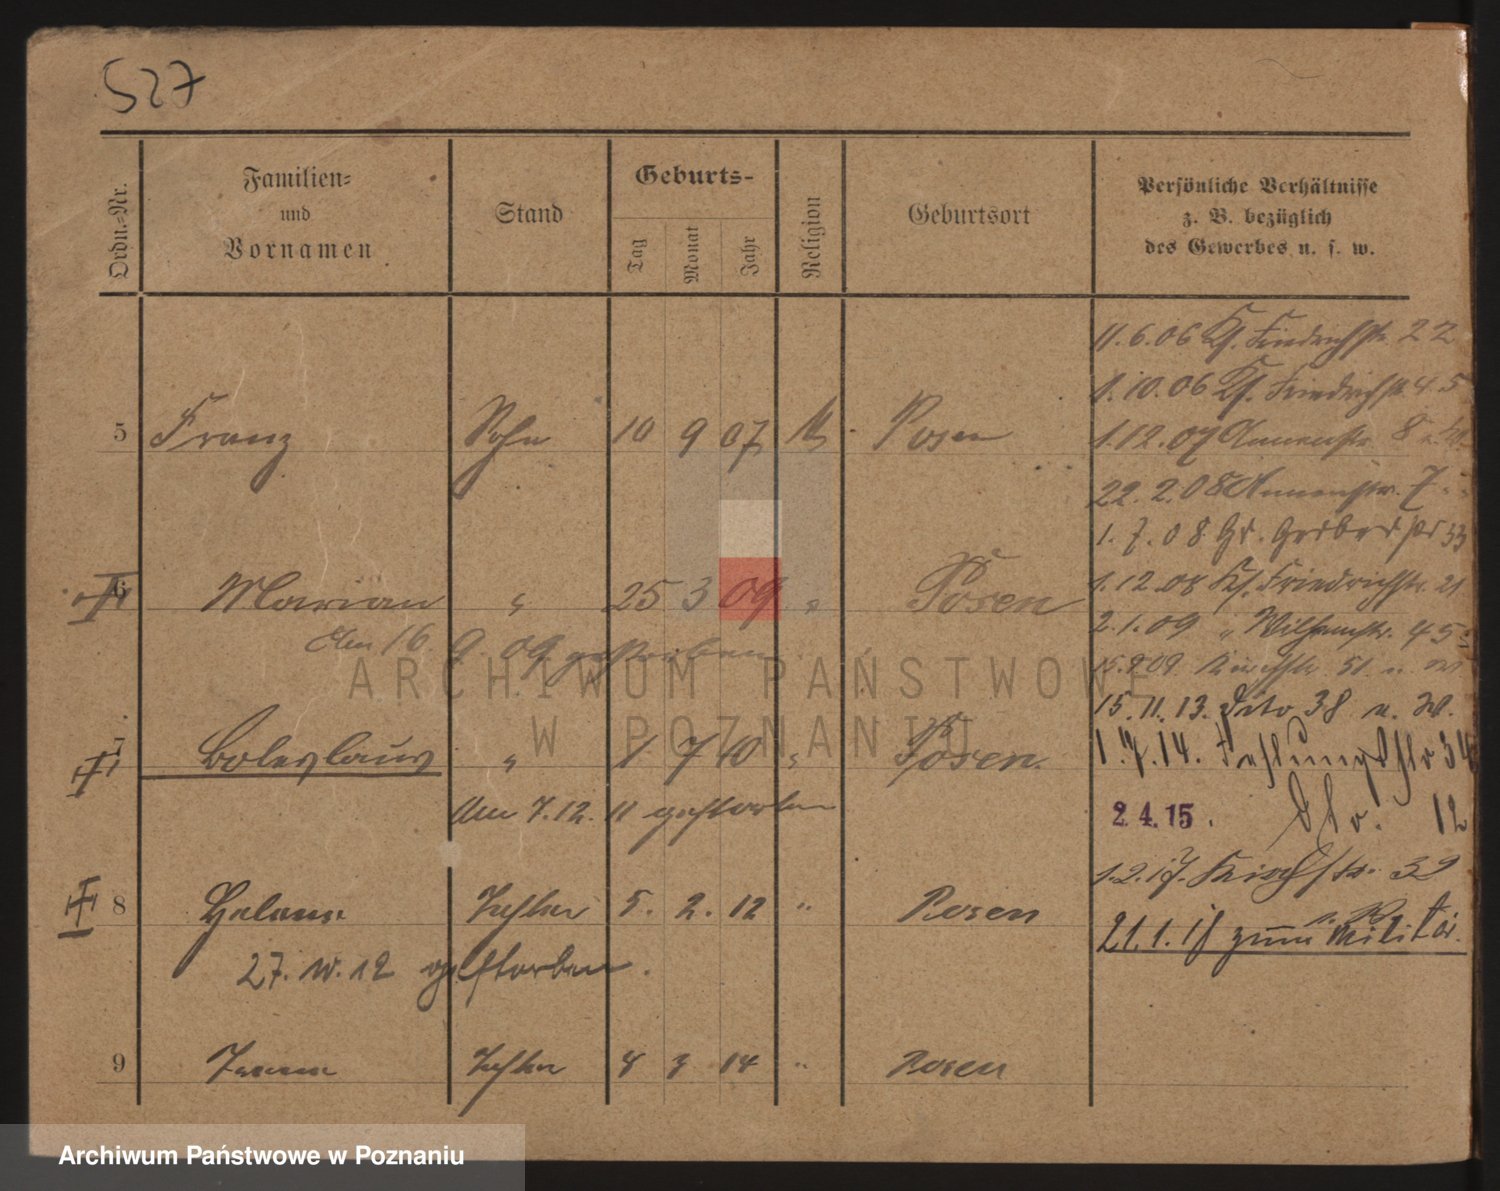 527
Ordn.-Nr.
Familien-
und
Vornamen
Stand
Geburts-
Tag
Monat
Jahr
Religion
Geburtsort
Persönliche Verhältnisse
z. B. bezüglich
des Gewerbes u. s. w.
11.6.06 Kl. Friedrichstr. 22
1.10.06 Kl. Friedrichstr. 45
5 Franz Sohn 10 9 07 Posen
1.12.07 Annenstr. 8
22.2.08 Annenstr. 7
1.7.08 Gr. Gerberstr 53
6 Marian " 25 3 09 " Posen
1.12.08 Kl. Friedrichstr. 21
Am 16 9. 09 gestorben
2.1.09 " Wilhelmstr. 45
15.9.09 Kirchstr. 51
15.11.13. Dito 38 u. W.
7 Boleslaus " 1 7 10 " Posen.
1.4.14. 34
Am 7.12. 11 gestorben
2.4.15. Dto. 12
1.2.17. Kirchstr. 39
8 Helene Tochter 5. 2. 12 " Posen
21.1.18 zum Militär.
27. 12 gestorben.
9 Tochter 8 3 14 " Posen
ARCHIWUM PAŃSTWOWE
W POZNANIU
Archiwum Państwowe w Poznaniu